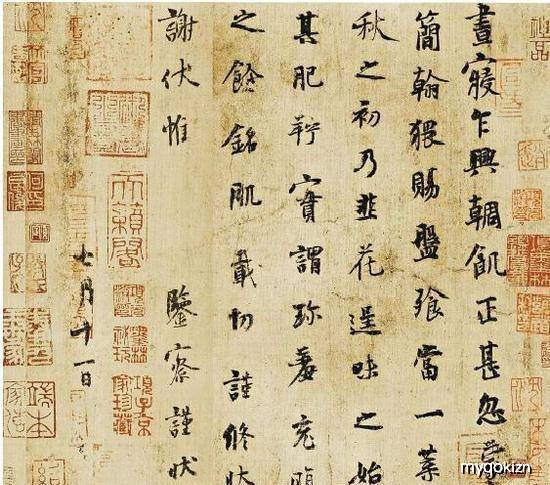 晝寢乍興輖飢正甚忽蒙
簡翰猥賜盤飧當一葉
秋之初乃韭花逞味之始
其肥羜實謂珎羞充腹
之餘銘肌載切謹修狀
謝伏惟 鑒察謹狀
七月十一日
天籟閣
項子京家珍藏
myqokizn